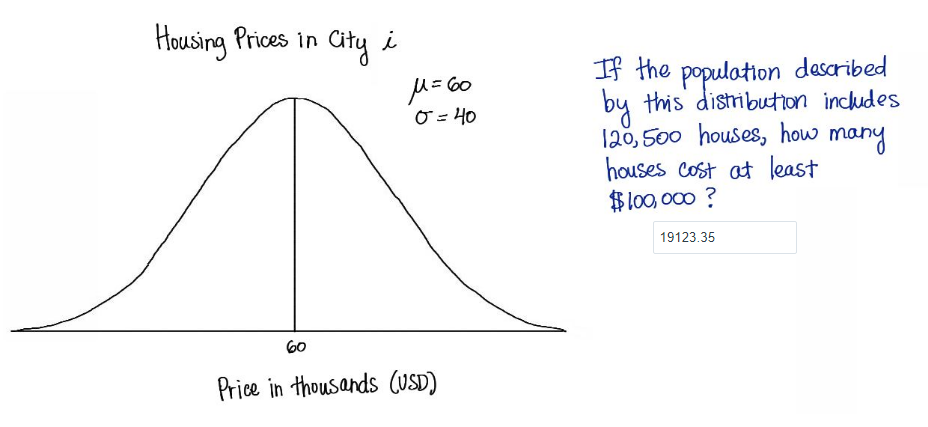 Housing Prices in City i
μ = 60
σ = 40
60
Price in thousands (USD)
If the population described
by this distribution includes
120,500 houses, how many
houses cost at least
$100,000 ?
19123.35